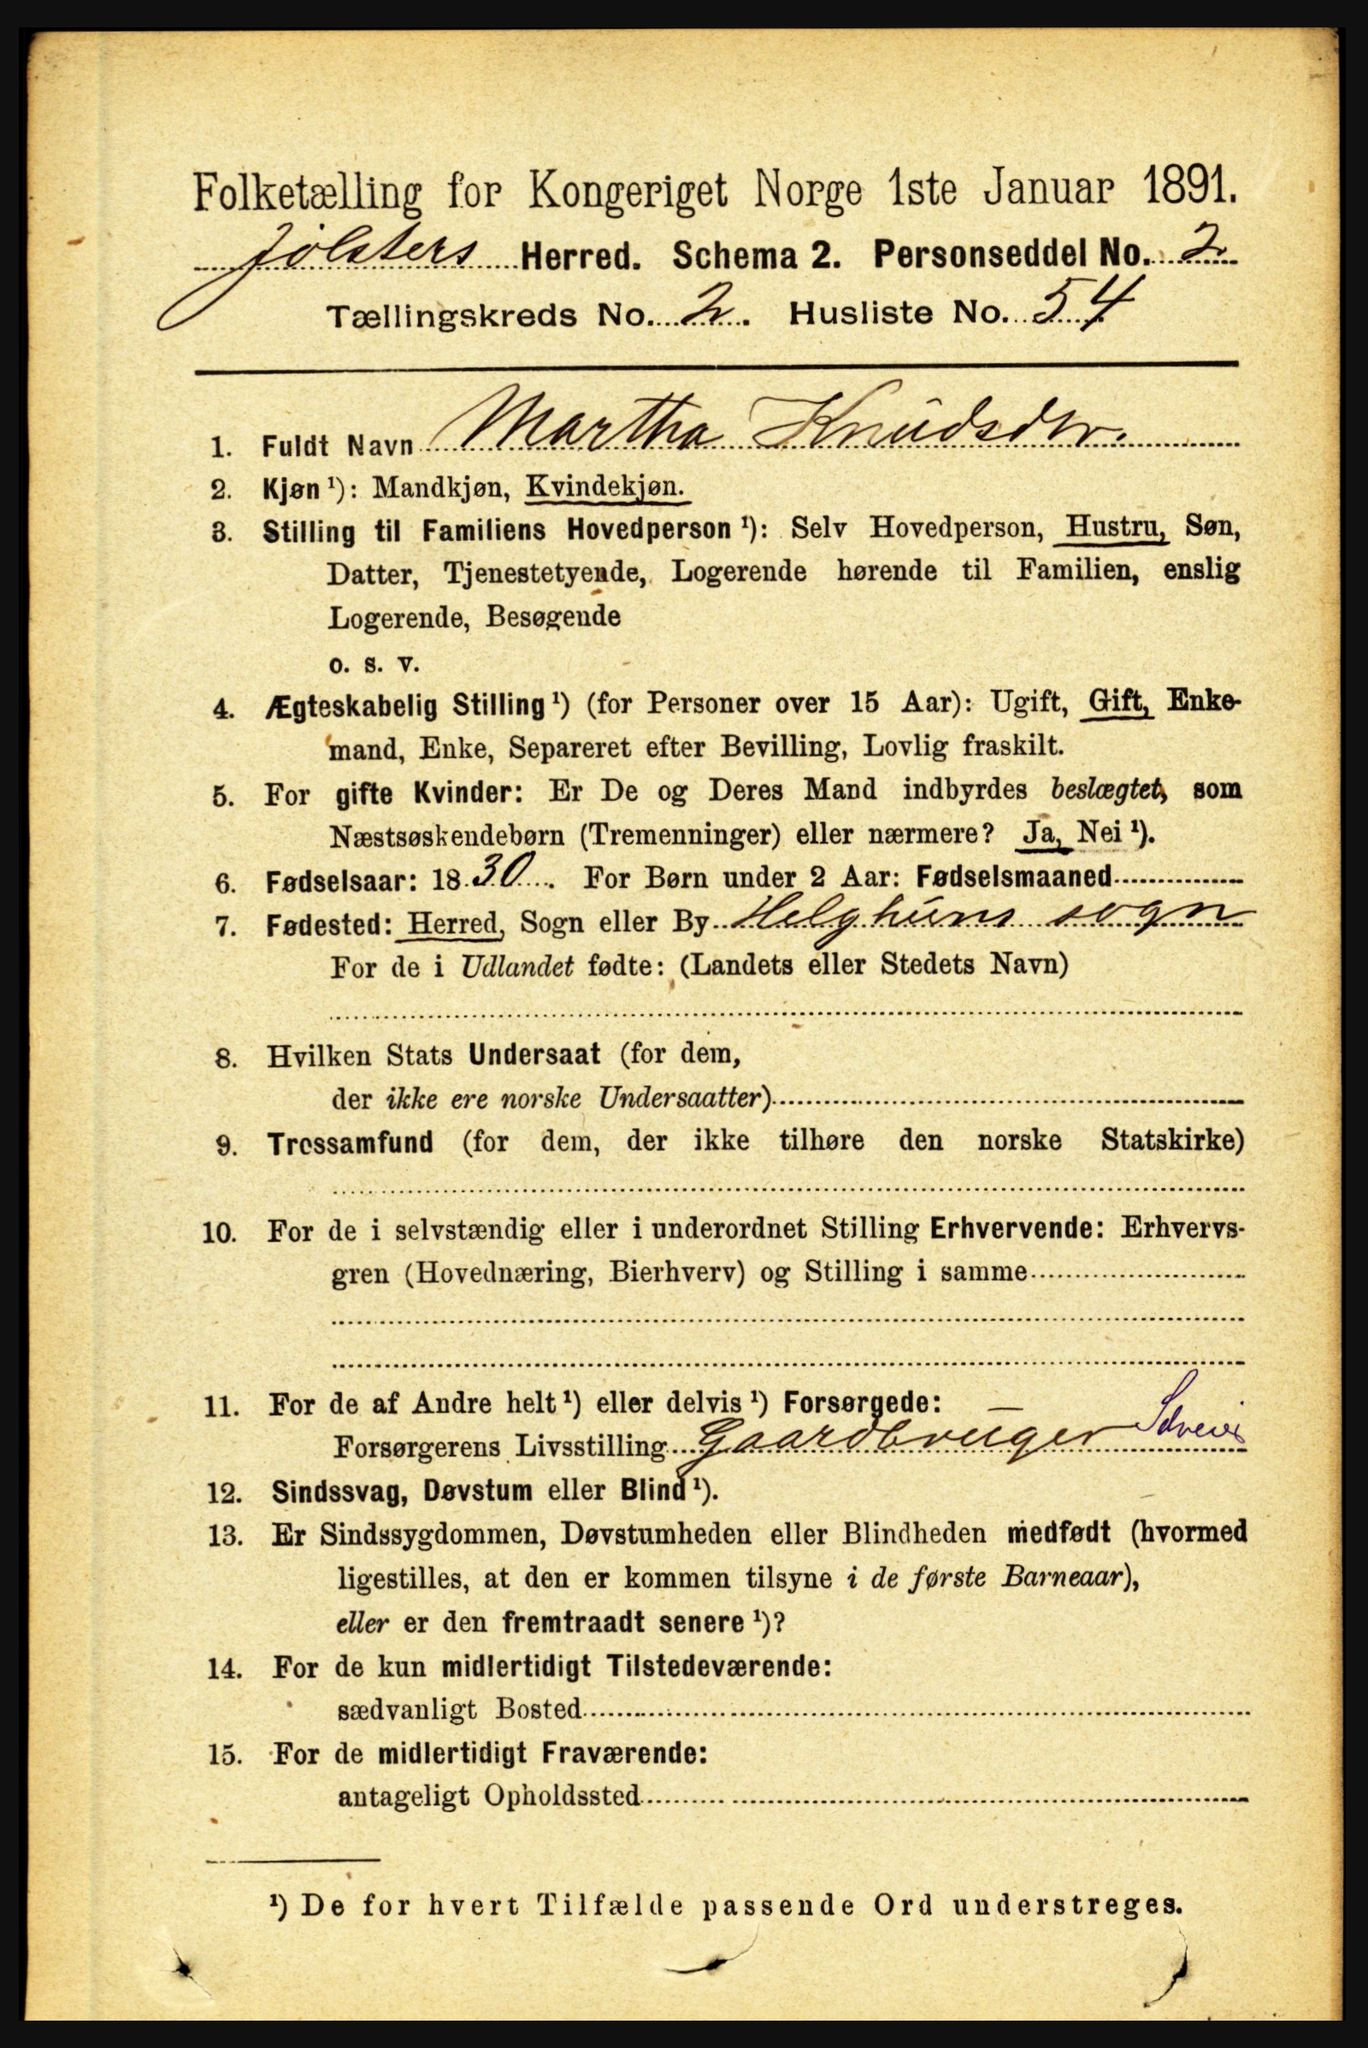 Folketælling for Kongeriget Norge 1ste Januar 1891.
Jölsters Herred. Schema 2. Personseddel No. 2
Tællingskreds No. 2. Husliste No. 54
1. Fuldt Navn Martha Knudsdtr.
2. Kjøn¹): Mandkjøn, Kvindekjøn.
3. Stilling til Familiens Hovedperson¹): Selv Hovedperson, Hustru, Søn,
Datter, Tjenestetyende, Logerende hørende til Familien, enslig
Logerende, Besøgende
o. s. v.
4. Ægteskabelig Stilling¹) (for Personer over 15 Aar): Ugift, Gift, Enke-
mand, Enke, Separeret efter Bevilling, Lovlig fraskilt.
5. For gifte Kvinder: Er De og Deres Mand indbyrdes beslægtet, som
Næstsøskendebørn (Tremenninger) eller nærmere? Ja, Nei¹).
6. Fødselsaar: 1830. For Børn under 2 Aar: Fødselsmaaned
7. Fødested: Herred, Sogn eller By Helghums sogn
For de i Udlandet fødte: (Landets eller Stedets Navn)
8. Hvilken Stats Undersaat (for dem,
der ikke ere norske Undersaatter)
9. Trossamfund (for dem, der ikke tilhøre den norske Statskirke)
10. For de i selvstændig eller i underordnet Stilling Erhvervende: Erhvervs-
gren (Hovednæring, Bierhverv) og Stilling i samme
11. For de af Andre helt¹) eller delvis¹) Forsørgede:
Forsørgerens Livsstilling Gaardbruger Selveier
12. Sindssvag, Døvstum eller Blind¹).
13. Er Sindssygdommen, Døvstumheden eller Blindheden medfødt (hvormed
ligestilles, at den er kommen tilsyne i de første Barneaar),
eller er den fremtraadt senere¹)?
14. For de kun midlertidigt Tilstedeværende:
sædvanligt Bosted
15. For de midlertidigt Fraværende:
antageligt Opholdssted
¹) De for hvert Tilfælde passende Ord understreges.